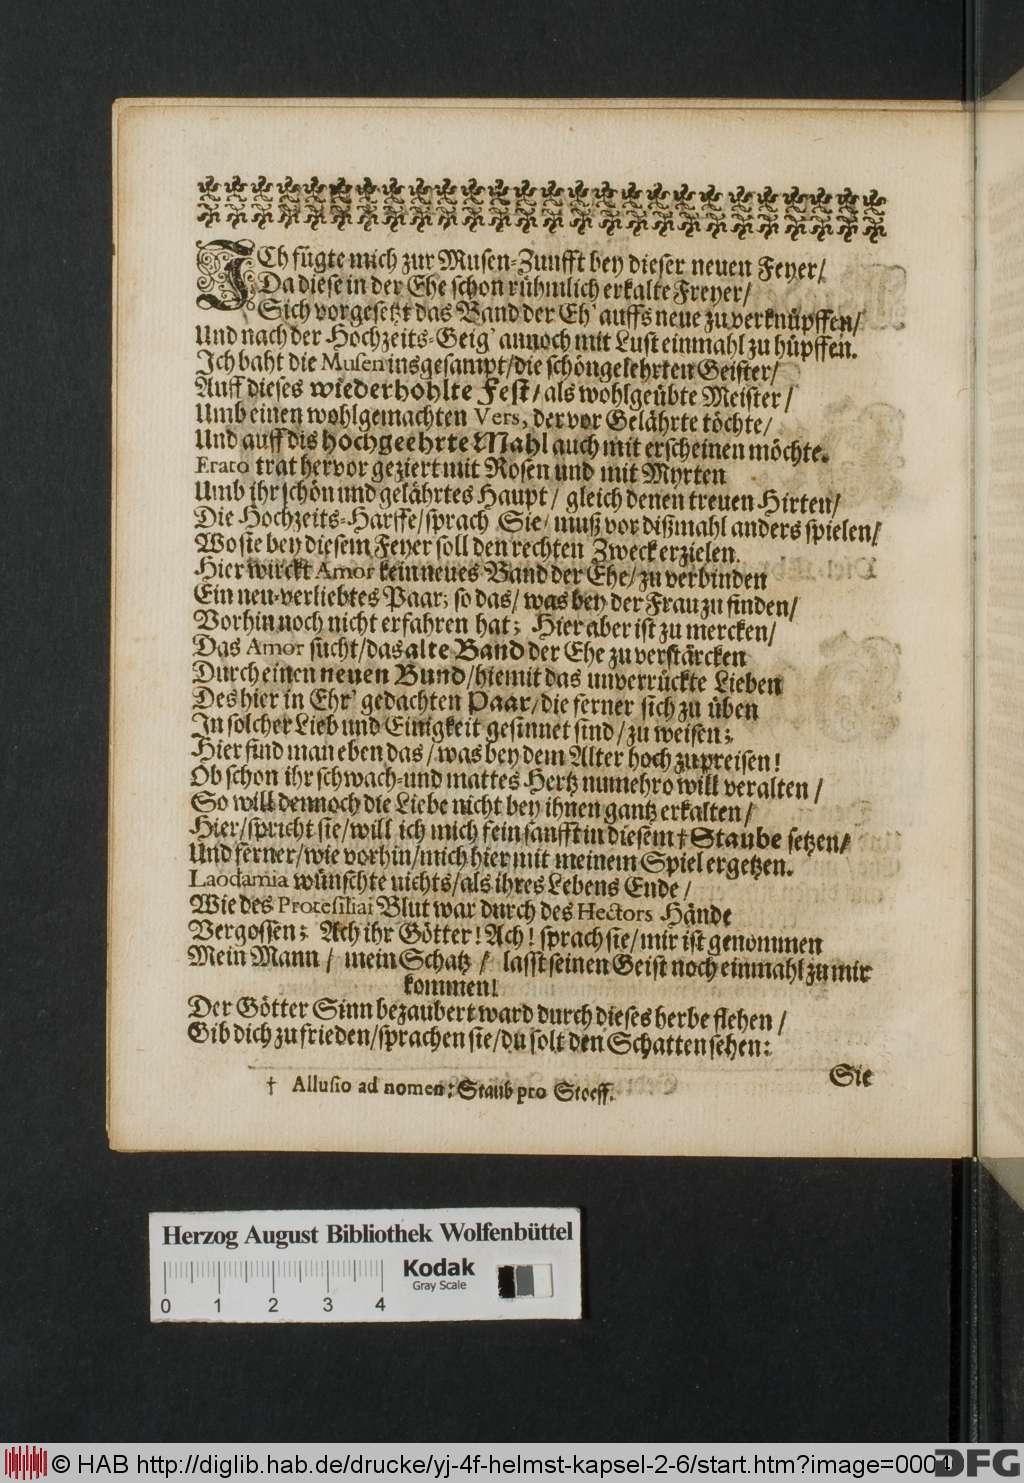 ICh fügte mich zur Musen-Zunfft bey dieser neuen Feyer/
Da diese in der Ehe schon rühmlich erkalte Freyer/
Sich vorgesetzt das Band der Eh' auffs neue zu verknüpffen/
Und nach der Hochzeits-Geig' annoch mit Lust einmahl zu hüpffen.
Ich baht die Musen insgesampt/die schöngelehrten Geister/
Auff dieses wiederhohlte Fest/als wohlgeübte Meister/
Umb einen wohlgemachten Vers, der vor Gelährte töchte/
Und auff dis hochgeehrte Mahl auch mit erscheinen möchte.
Erato trat hervor geziert mit Rosen und mit Myrten
Umb ihr schön und gelährtes Haupt/ gleich denen treuen Hirten/
Die Hochzeits-Harffe/sprach Sie/ muß vor dißmahl anders spielen/
Wo sie bey diesem Feyer soll den rechten Zweck erzielen.
Hier wirckt Amor kein neues Band der Ehe/zu verbinden
Ein neu-verliebtes Paar; so das/ was bey der Frau zu finden/
Vorhin noch nicht erfahren hat; Hier aber ist zu mercken/
Das Amor sucht/das alte Band der Ehe zu verstärcken
Durch einen neuen Bund/hiemit das unverrückte Lieben
Des hier in Ehr' gedachten Paar/die ferner sich zu üben
In solcher Lieb und Einigkeit gesinnet sind/zu weisen;
Hier find man eben das/was bey dem Alter hoch zu preisen!
Ob schon ihr schwach-und mattes Hertz numehro will veralten/
So will dennoch die Liebe nicht bey ihnen gantz erkalten/
Hier/spricht sie/will ich mich fein sanfft in diesem † Staube setzen/
Und ferner/wie vorhin/mich hier mit meinem Spiel ergetzen.
Laodamia wünschte nichts/als ihres Lebens Ende/
Wie des Protesiliai Blut war durch des Hectors Hände
Vergossen; Ach ihr Götter! Ach! sprach sie/mir ist genommen
Mein Mann/ mein Schatz/ lasst seinen Geist noch einmahl zu mir
kommen!
Der Götter Sinn bezaubert ward durch dieses herbe flehen/
Gib dich zu frieden/sprachen sie/du solt den Schatten sehen:
Sie
† Allusio ad nomen: Staub pro Stoeff.
Herzog August Bibliothek Wolfenbüttel
Kodak
Gray Scale
0 1 2 3 4
© HAB http://diglib.hab.de/drucke/yj-4f-helmst-kapsel-2-6/start.htm?image=0004
DFG